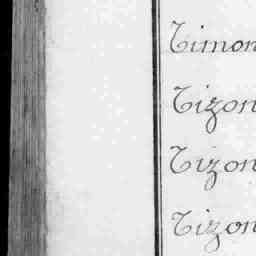 Timon
Tizon
Tizon
Tizon